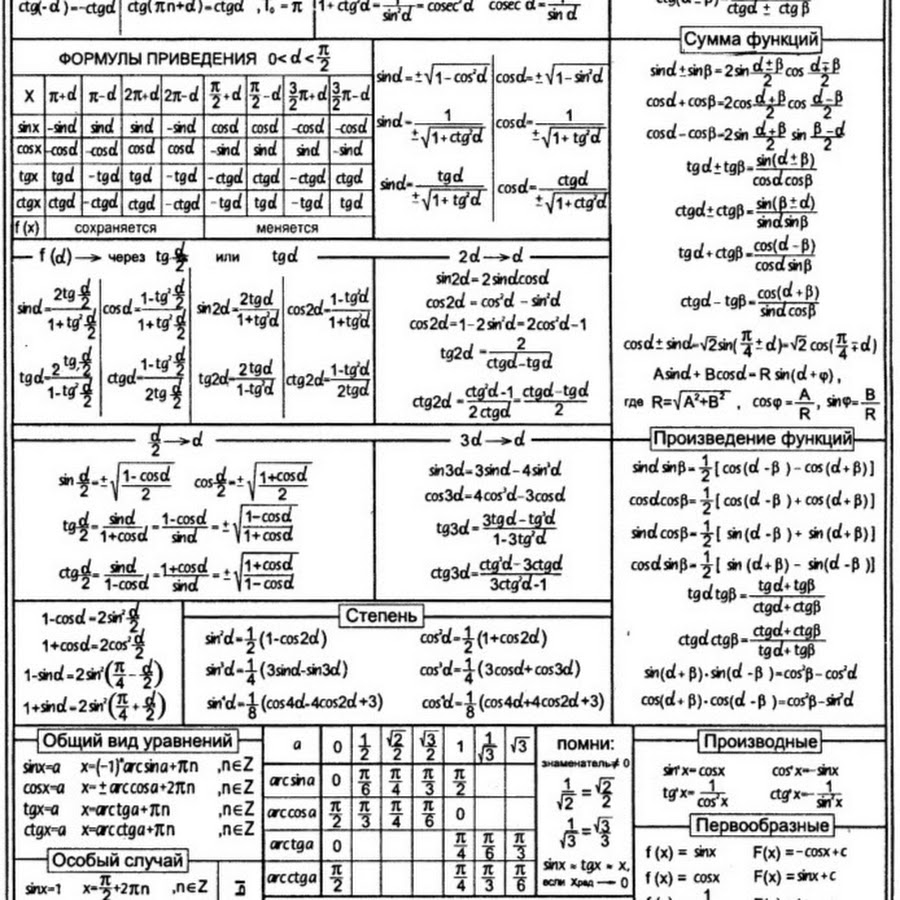 ctg(-α)=-ctgα ctg(πn+α)=ctgα , T₀ = π
1+ctg²α=1/sin²α=cosec²α cosec α=1/sin α
ctgα ± ctg β
ФОРМУЛЫ ПРИВЕДЕНИЯ 0<α<π/2
X π+α π-α 2π+α 2π-α π/2+α π/2-α 3/2π+α 3/2π-α
sinx -sinα sinα sinα -sinα cosα cosα -cosα -cosα
cosx -cosα -cosα cosα cosα -sinα sinα sinα -sinα
tgx tgα -tgα tgα -tgα -ctgα ctgα -ctgα ctgα
ctgx ctgα -ctgα ctgα -ctgα -tgα tgα -tgα tgα
f(x) сохраняется меняется
sinα=±√(1-cos²α) cosα=±√(1-sin²α)
sinα=1/±√(1+ctg²α) cosα=1/±√(1+tg²α)
sinα=tgα/±√(1+tg²α) cosα=ctgα/±√(1+ctg²α)
Сумма функций
sinα±sinβ=2sin (α±β)/2 cos (α∓β)/2
cosα+cosβ=2cos (α+β)/2 cos (α-β)/2
cosα-cosβ=2sin (α+β)/2 sin (β-α)/2
tgα±tgβ=sin(α±β)/cosαcosβ
ctgα±ctgβ=sin(β±α)/sinαsinβ
tgα+ctgβ=cos(α-β)/cosαsinβ
ctgα-tgβ=cos(α+β)/sinαcosβ
cosα±sinα=√2sin(π/4±α)=√2cos(π/4∓α)
Asinα+Bcosα=R sin(α+φ),
где R=√(A²+B²) , cosφ=A/R, sinφ=B/R
f(α) → через tg α/2 или tgα
sinα=2tg α/2/(1+tg² α/2) cosα=(1-tg² α/2)/(1+tg² α/2) sin2α=2tgα/(1+tg²α) cos2α=(1-tg²α)/(1+tg²α)
tgα=2tg α/2/(1-tg² α/2) ctgα=(1-tg² α/2)/2tg α/2 tg2α=2tgα/(1-tg²α) ctg2α=(1-tg²α)/2tgα
2α→α
sin2α=2sinαcosα
cos2α=cos²α-sin²α
cos2α=1-2sin²α=2cos²α-1
tg2α=2/(ctgα-tgα)
ctg2α=(ctg²α-1)/2ctgα=(ctgα-tgα)/2
α/2→α
sin α/2=±√((1-cosα)/2) cos α/2=±√((1+cosα)/2)
tg α/2=sinα/(1+cosα)=(1-cosα)/sinα=±√((1-cosα)/(1+cosα))
ctg α/2=sinα/(1-cosα)=(1+cosα)/sinα=±√((1+cosα)/(1-cosα))
3α→α
sin3α=3sinα-4sin³α
cos3α=4cos³α-3cosα
tg3α=(3tgα-tg³α)/(1-3tg²α)
ctg3α=(ctg³α-3ctgα)/(3ctg²α-1)
Произведение функций
sinα sinβ=1/2[cos(α-β)-cos(α+β)]
cosαcosβ=1/2[cos(α-β)+cos(α+β)]
sinαcosβ=1/2[sin(α-β)+sin(α+β)]
cosα sinβ=1/2[sin(α+β)-sin(α-β)]
tgα tgβ=(tgα+tgβ)/(ctgα+ctgβ)
ctgα ctgβ=(ctgα+ctgβ)/(tgα+tgβ)
sin(α+β)·sin(α-β)=cos²β-cos²α
cos(α+β)·cos(α-β)=cos²β-sin²α
1-cosα=2sin² α/2
1+cosα=2cos² α/2
1-sinα=2sin²(π/4-α/2)
1+sinα=2sin²(π/4+α/2)
Степень
sin²α=1/2(1-cos2α) cos²α=1/2(1+cos2α)
sin³α=1/4(3sinα-sin3α) cos³α=1/4(3cosα+cos3α)
sin⁴α=1/8(cos4α-4cos2α+3) cos⁴α=1/8(cos4α+4cos2α+3)
Общий вид уравнений
sinx=a x=(-1)ⁿarcsina+πn ,n∈Z
cosx=a x=±arccosa+2πn ,n∈Z
tgx=a x=arctga+πn ,n∈Z
ctgx=a x=arcctga+πn ,n∈Z
Особый случай
sinx=1 x=π/2+2πn ,n∈Z
a 0 1/2 √2/2 √3/2 1 1/√3 √3
arcsina 0 π/6 π/4 π/3 π/2
arccosa π/2 π/3 π/4 π/6 0
arctga 0 π/4 π/6 π/3
arcctga π/2 π/4 π/3 π/6
ПОМНИ:
знаменатель≠0
1/√2=√2/2
1/√3=√3/3
sinx≈tgx≈x,
если Xрад→0
Производные
sin'x=cosx cos'x=-sinx
tg'x=1/cos²x ctg'x=-1/sin²x
Первообразные
f(x) = sinx F(x)=-cosx+c
f(x) = cosx F(x)=sinx+c